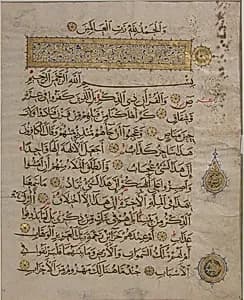 والحمد لله رب العالمين
بسم الله الرحمن الرحيم
ص والقرآن ذي الذكر بل الذين كفروا في عزة
وشقاق كم أهلكنا من قبلهم من قرن فنادوا ولات
حين مناص وعجبوا أن جاءهم منذر منهم وقال الكافرون
هذا ساحر كذاب أجعل الآلهة إلها واحدا
إن هذا لشيء عجاب وانطلق الملأ منهم أن امشوا
واصبروا على آلهتكم إن هذا لشيء يراد ما سمعنا بهذا
في الملة الآخرة إن هذا إلا اختلاق أأنزل عليه
الذكر من بيننا بل هم في شك من ذكري بل لما يذوقوا
عذاب أم عندهم خزائن رحمة ربك العزيز الوهاب
أم لهم ملك السموات والأرض وما بينهما فليرتقوا في
الأسباب جند ما هنالك مهزوم من الأحزاب